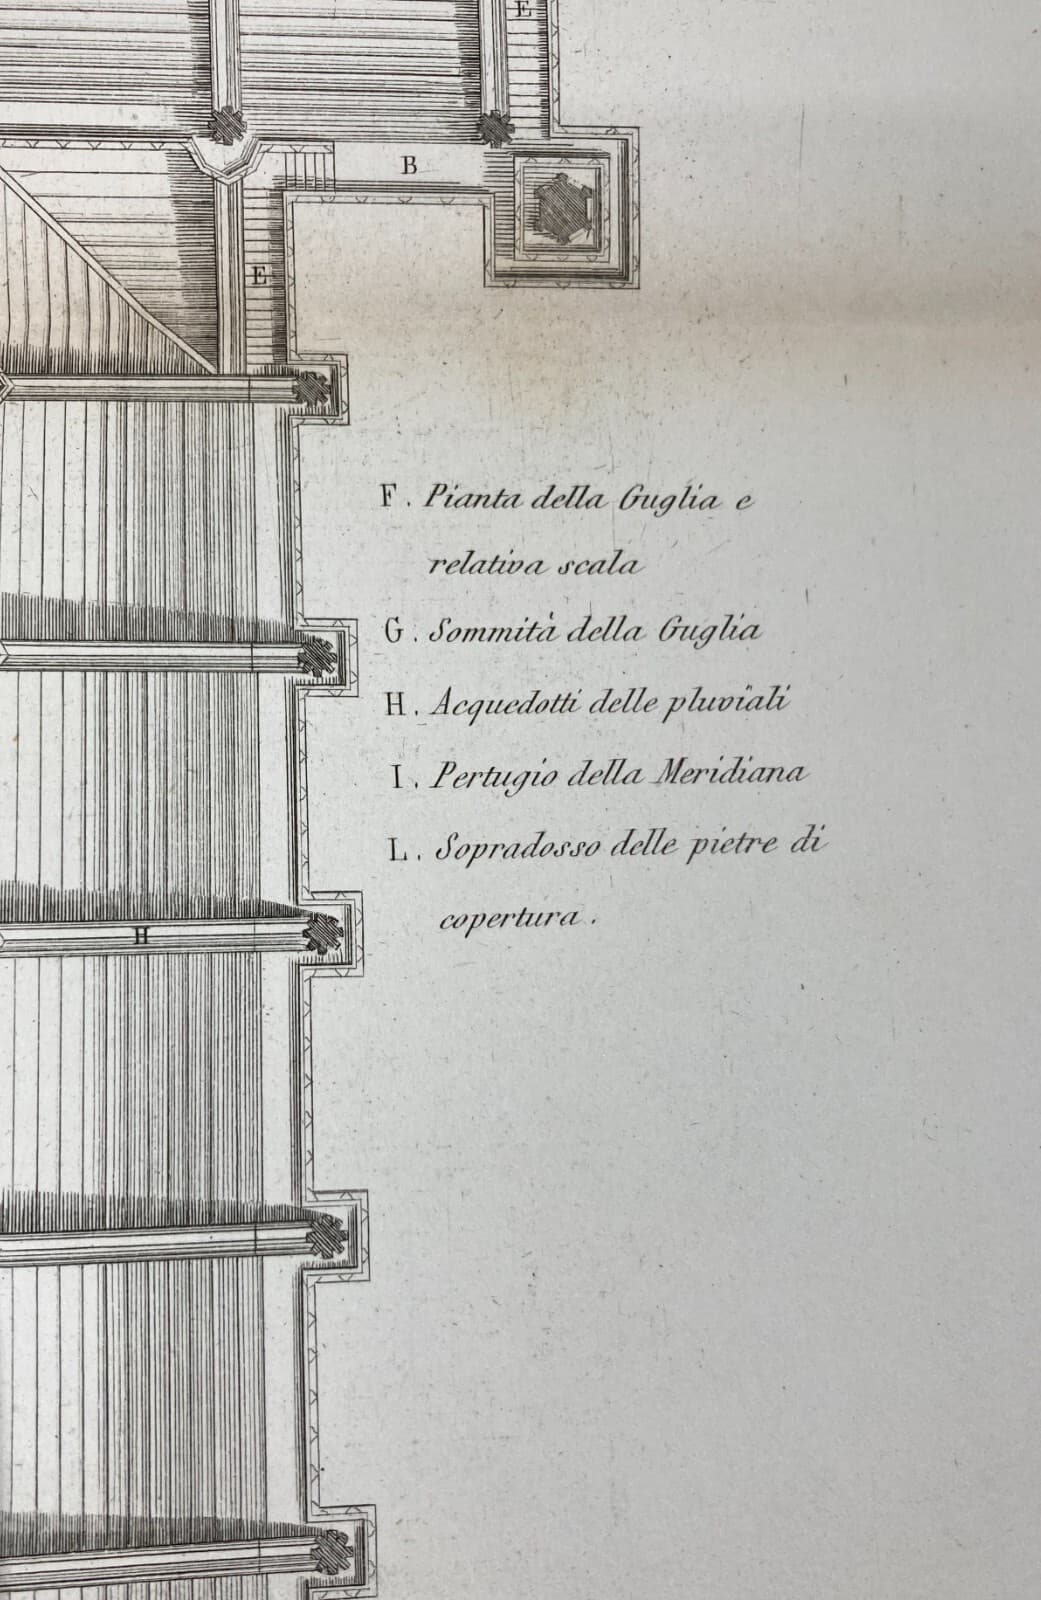 E
B
E
F. Pianta della Guglia e
relativa scala
G. Sommità della Guglia
H. Acquedotti delle pluviali
I. Pertugio della Meridiana
L. Sopradosso delle pietre di
copertura.
H